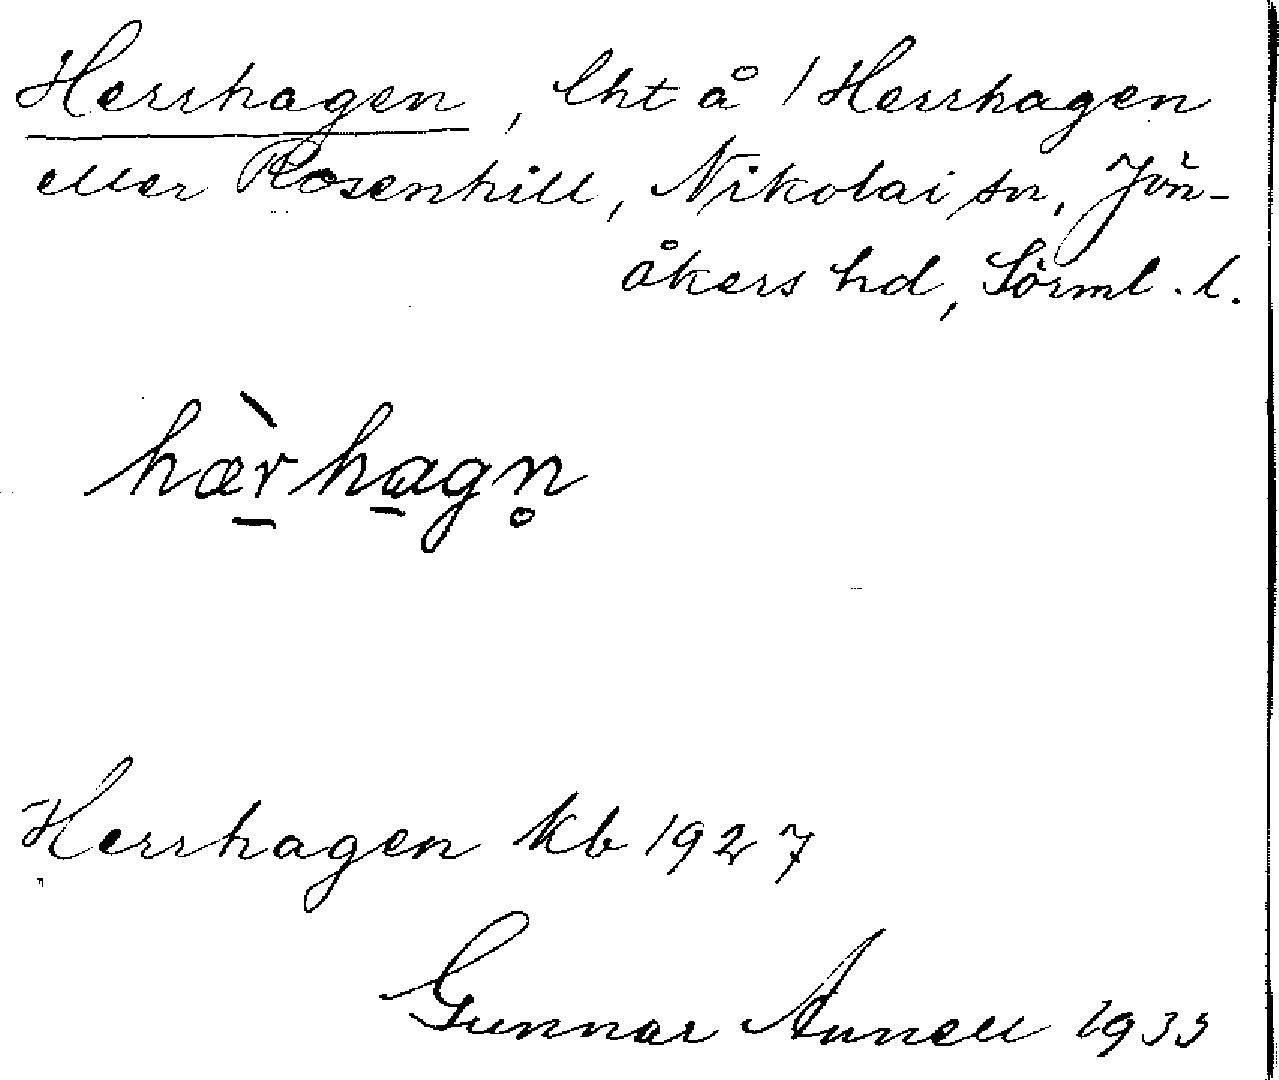 Herrhagen, lht å 1 Herrhagen
eller Rosenhill, Nikolai sn, Jön-
åkers hd, Sörml. l.
hæ̀r̠ha̠gn̥
Herrhagen kb 1927
Gunnar Annell 1935